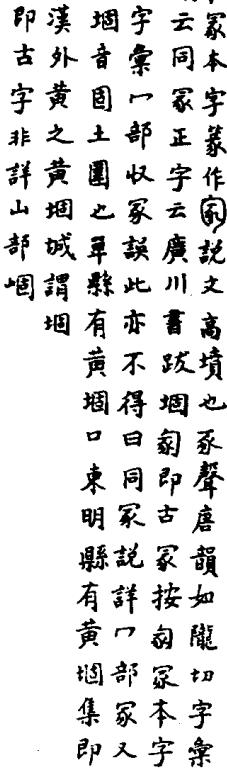 冢本字篆作說文高墳也豕聲唐韻如隴切字彙
云同冢正字云廣川書跋堌即古冢按冢本字
字彙冖部収冢誤此亦不得曰同冢說詳冖部冢又
堌音固土圍也單縣有黃堌口東明縣有黃堌集即
漢外黃之黃堌城謂堌
即古字非詳山部崓